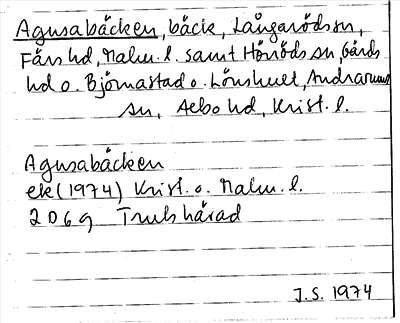 Agusabäcken, bäck, Långarödssn,
Färs hd, Malm. l. samt Hörröds sn, Gärds
hd o. Björnastad o. Lönshult, Andrarums
sn, Albo hd, Krist. l.
Agusabäcken
ek (1974) Krist. o. Malm. l.
2 D 6 g Trulshärad
J.S. 1974